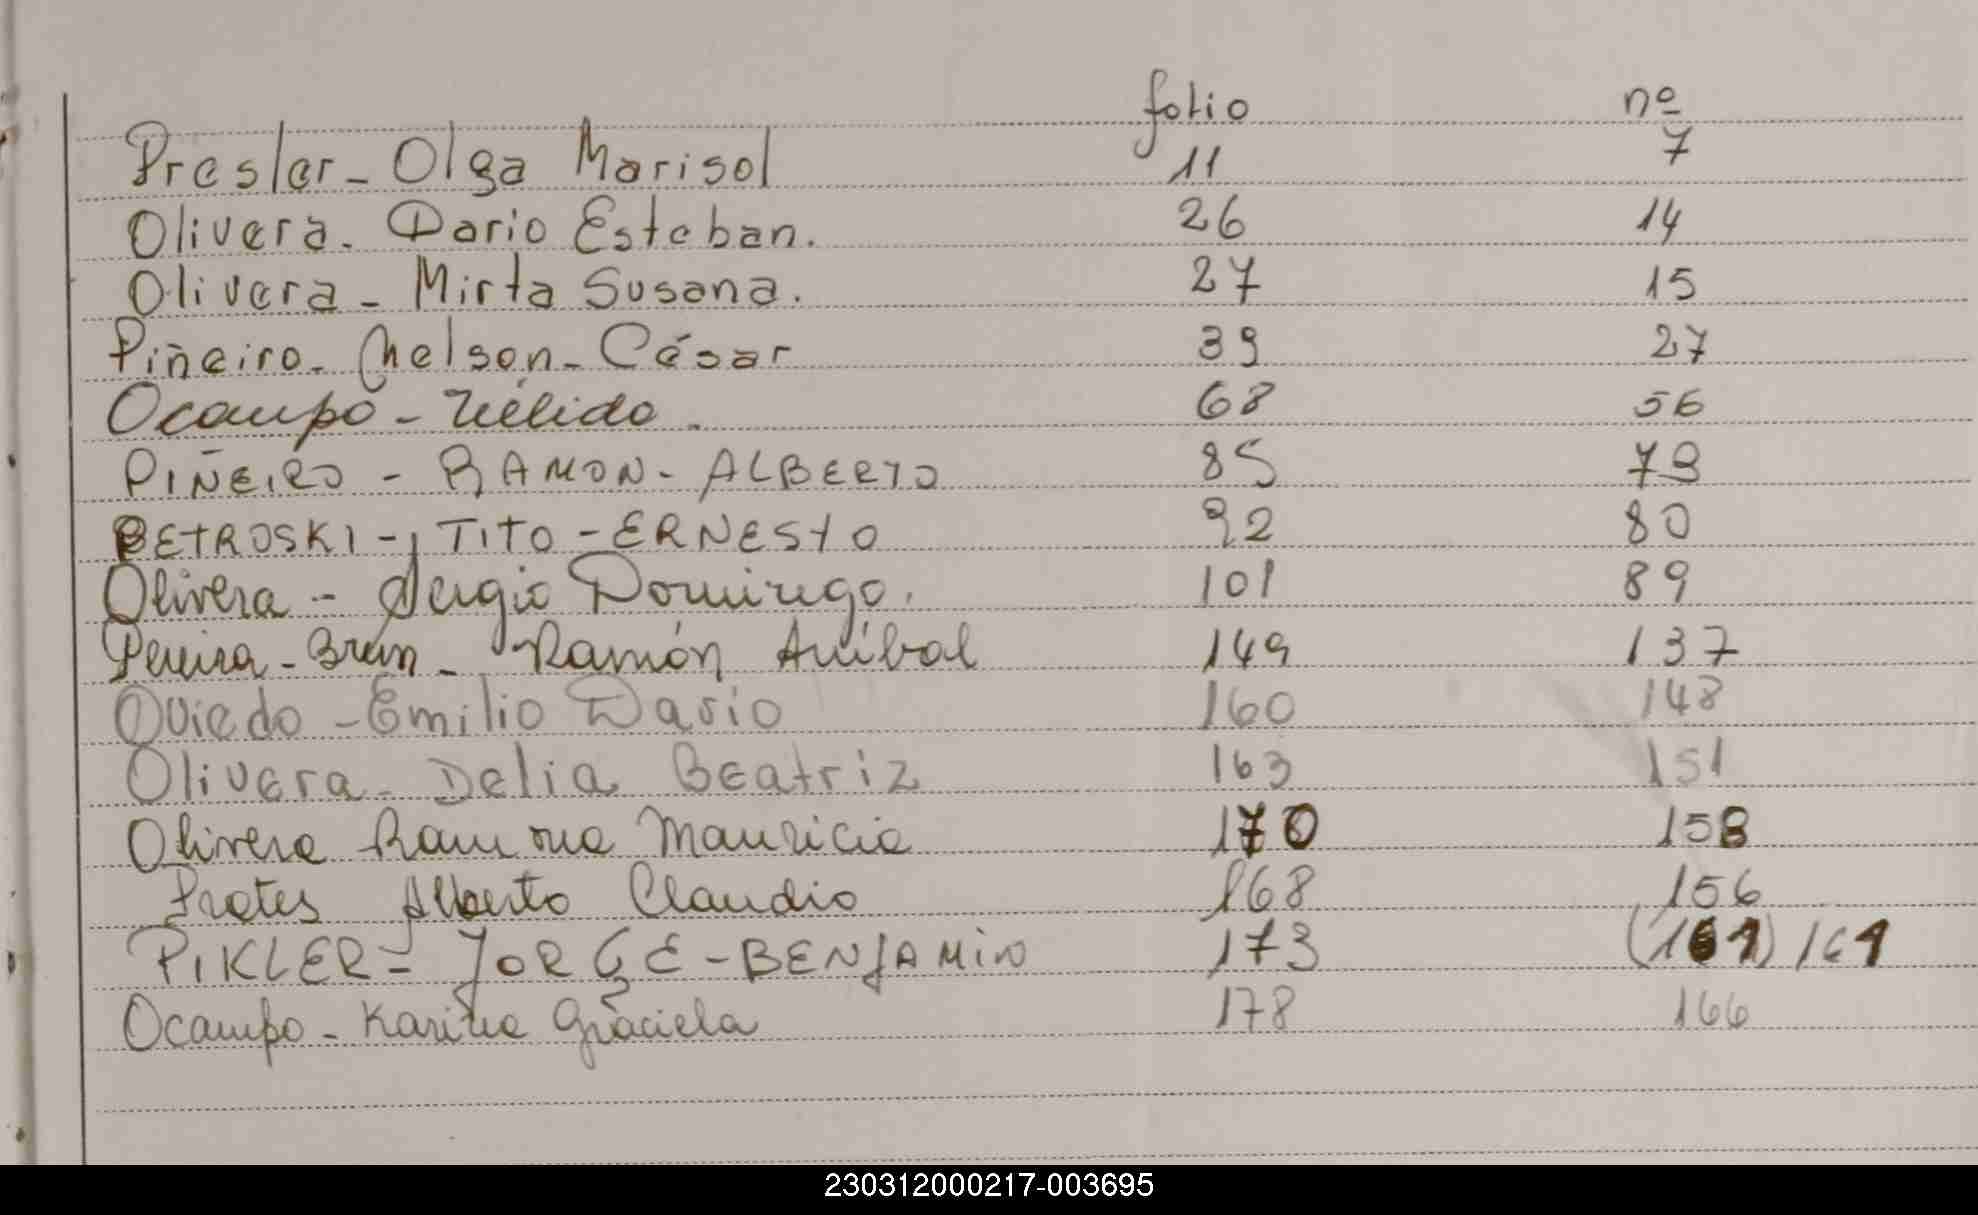 folio nº
Presler - Olga Marisol 11 7
Olivera. Dario Esteban. 26 14
Olivera - Mirta Susana. 27 15
Piñeiro - Nelson - César 39 27
Ocampo - Nélido. 68 56
PIÑEIRO - RAMON - ALBERTO 85 73
PETROSKI - TITO - ERNESTO 92 80
Olivera - Sergio Domingo. 101 89
Pereira - Brun - Ramón Aníbal 149 137
Oviedo - Emilio Dario 160 148
Olivera - Delia Beatriz 163 151
Olivera Ramona Mauricia 170 158
Prates Alberto Claudio 168 156
PIKLER = JORGE - BENJAMIN 173 (161) 161
Ocampo - Karina Graciela 178 166
230312000217-003695